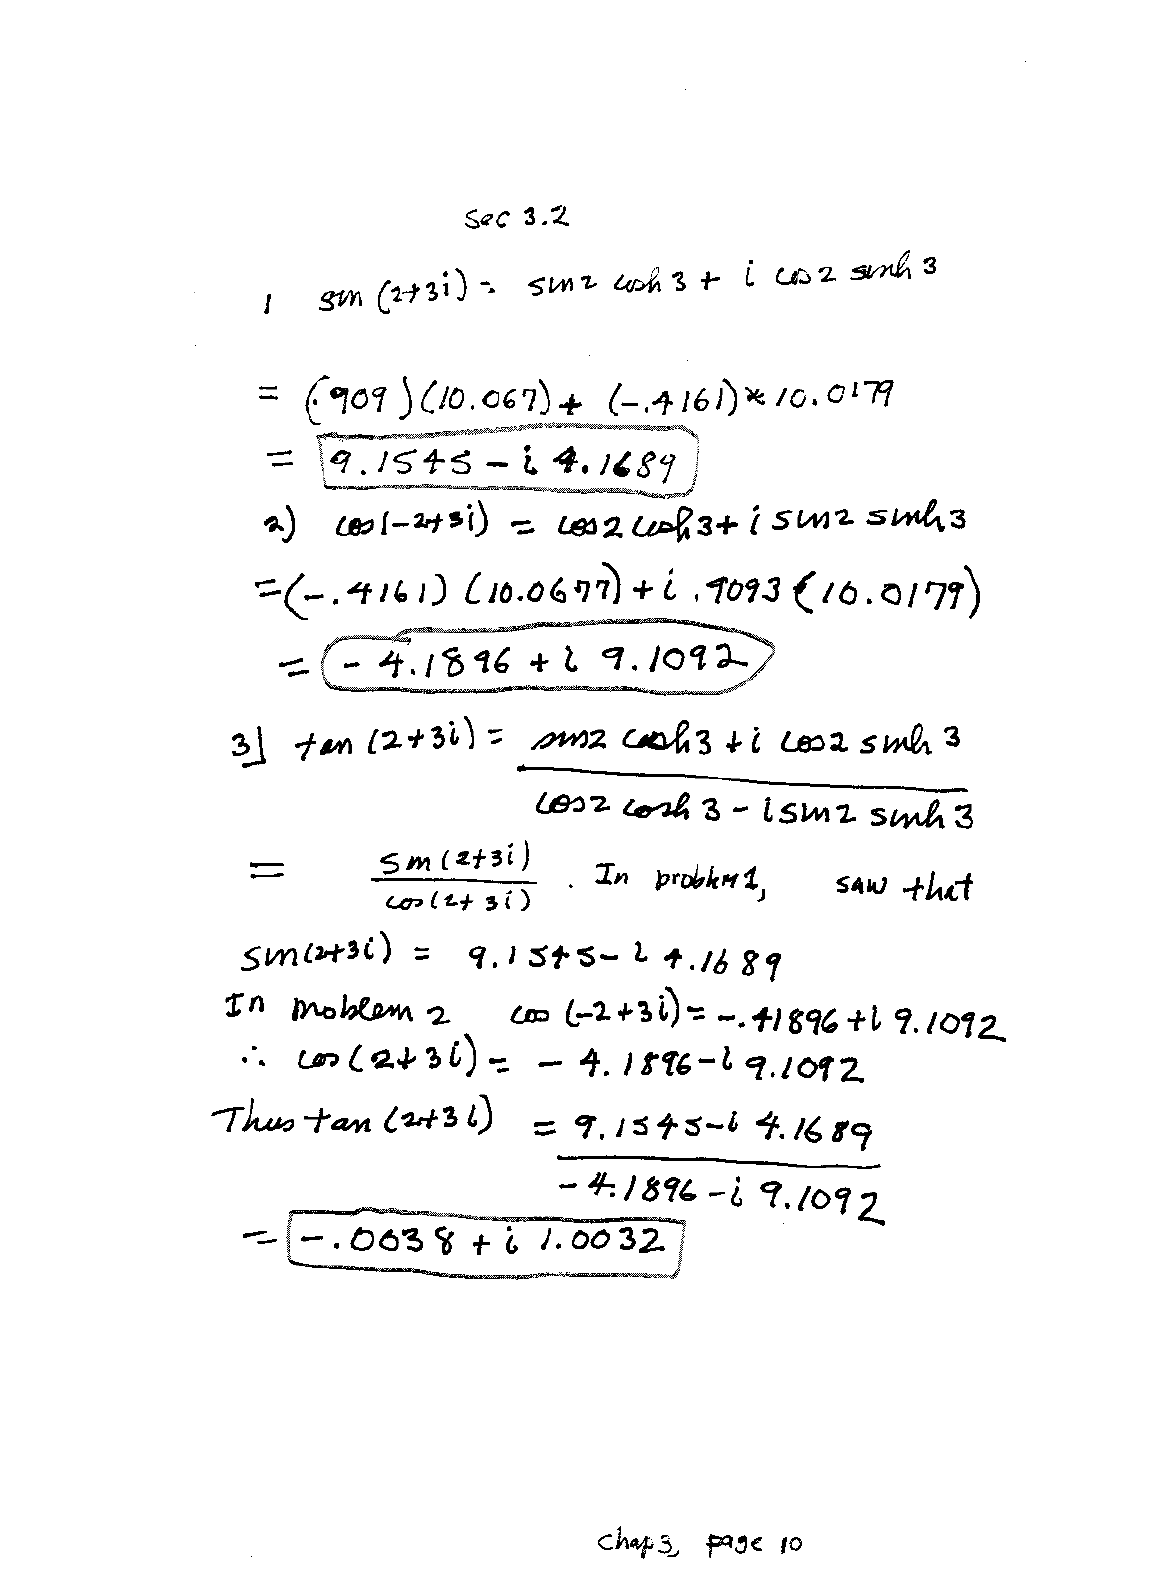 Sec 3.2
1 sin (2+3i) = sin 2 cosh 3 + i cos 2 sinh 3
= (.909)(10.067) + (-.4161)*10.0179
= 9.1545 - i 4.1689
2) cos(-2+3i) = cos 2 cosh 3 + i sin 2 sinh 3
=(-.4161) (10.0677) + i .9093 (10.0179)
= -4.1896 + i 9.1092
3] tan (2+3i) = sin 2 cosh 3 + i cos 2 sinh 3
cos 2 cosh 3 - i sin 2 sinh 3
= sin (2+3i) / cos (2+3i) . In problem 1, saw that
sin(2+3i) = 9.1545 - i 4.1689
In problem 2 cos (-2+3i) = -.41896 + i 9.1092
∴ cos (2+3i) = -4.1896 - i 9.1092
Thus tan (2+3i) = 9.1545 - i 4.1689
-4.1896 - i 9.1092
= -.0038 + i 1.0032
Chap 3, page 10